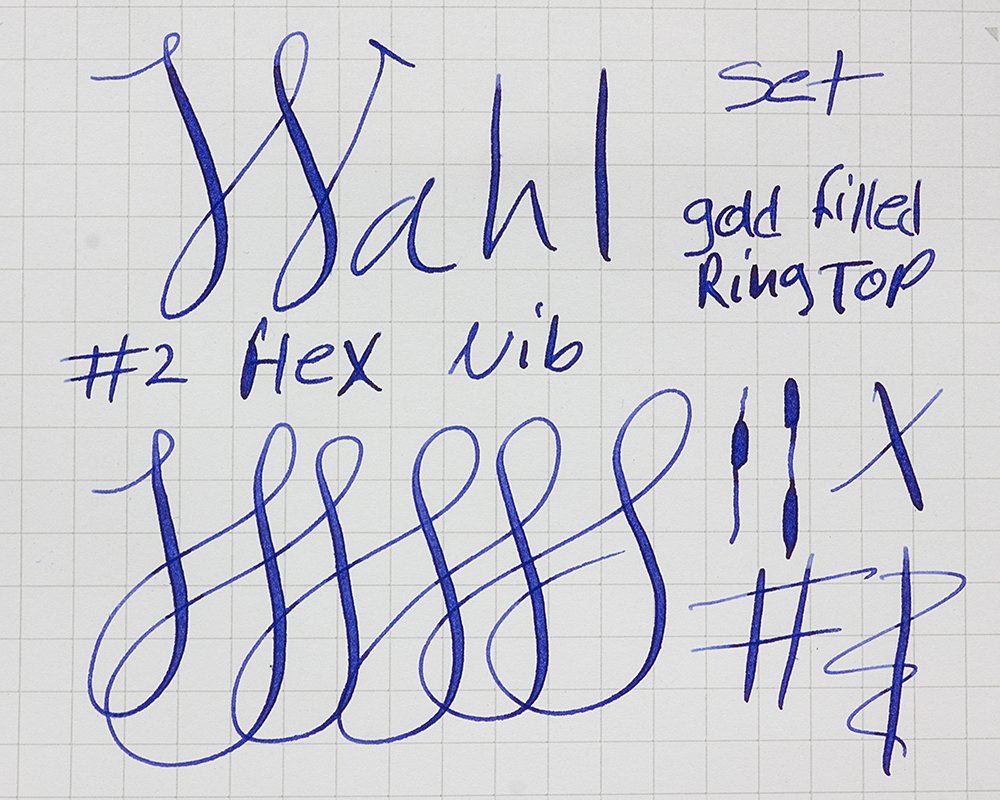 Wahl
set
gold filled
Ring Top
#2 Hex Nib
X
#